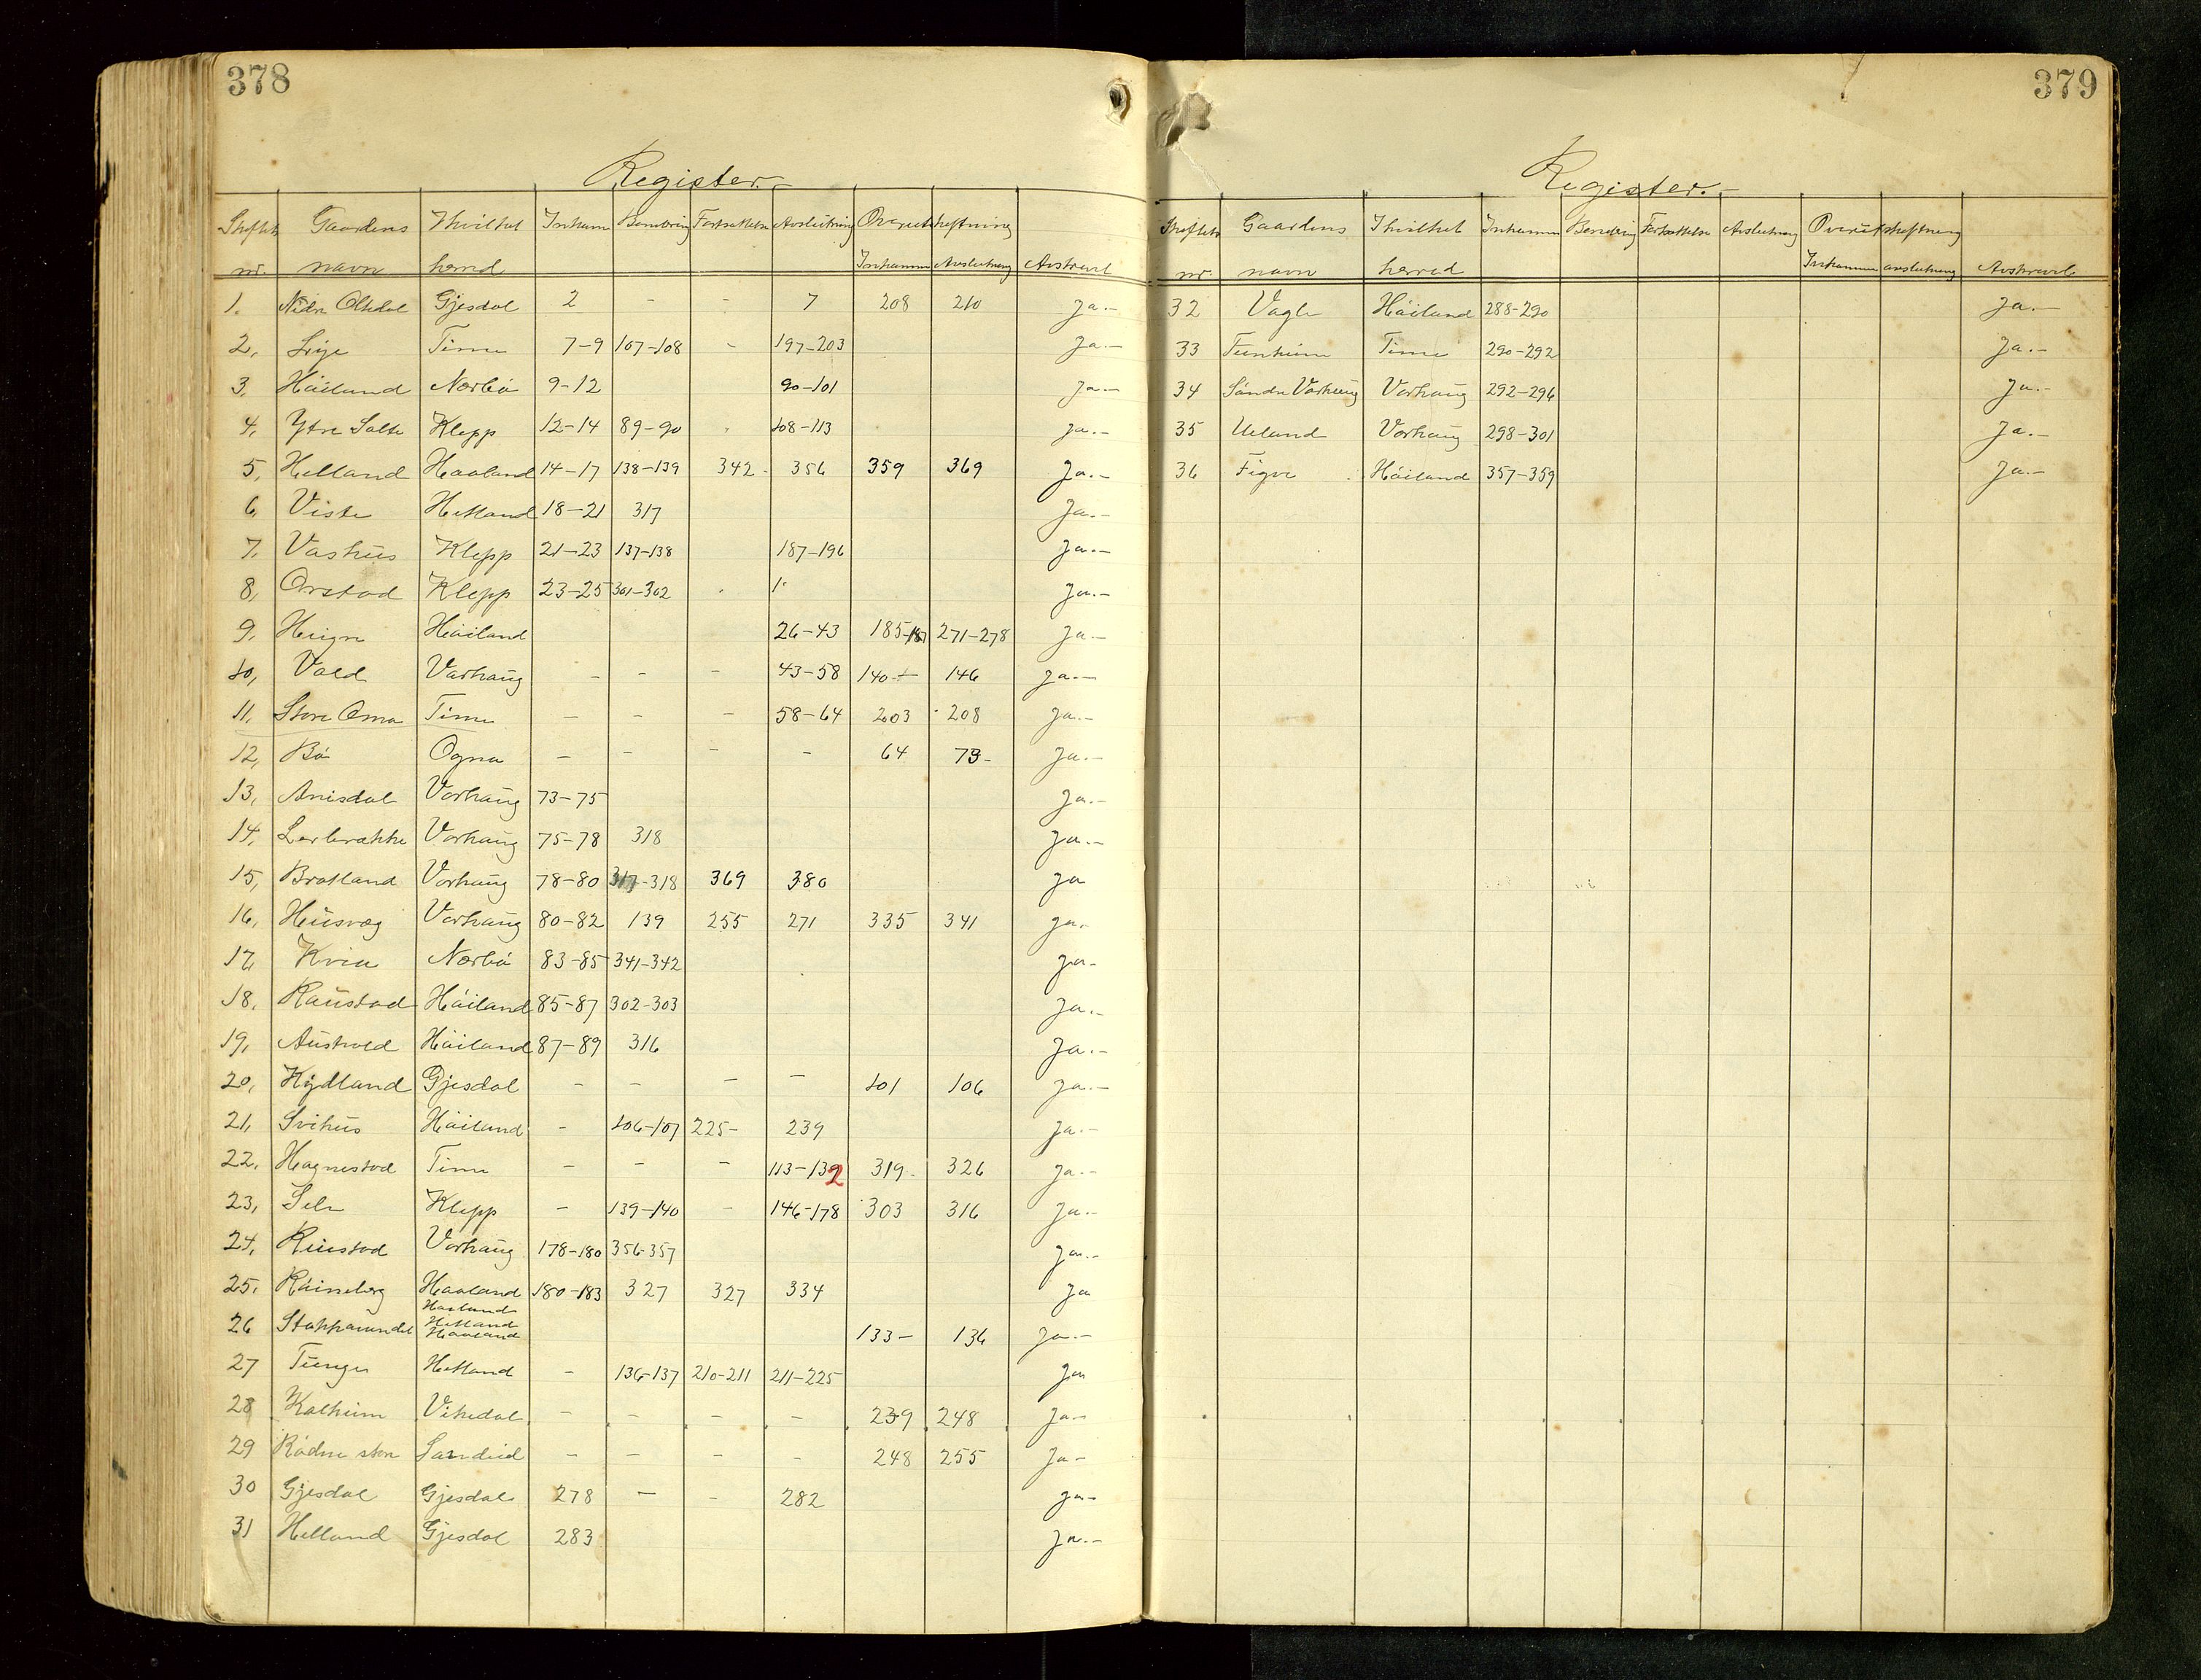 378
Register.
Skiftets Gaardens I hvilket Inkam Bonitering Fortsættelse Avslutning Overutskiftning
nr. navn herred Inkamm Avslutning Avskrevet
1. Nedre Oltedal Gjesdal 2 - - 7 208 210 Ja.-
2, Lye Time 7-9 107-108 - 197-203 Ja.-
3, Håiland Nærbö 9-12 90-101 Ja.-
4, Ytre Salte Klepp 12-14 89-90 108-113 Ja.-
5, Helland Haaland 14-17 138-139 342- 356 359 369 Ja.-
6, Viste Hetland 18-21 317 Ja.-
7, Vashus Klepp 21-23 137-138 187-196 Ja.-
8, Orstad Klepp 23-25 301-302 Ja.-
9, Heigre Håiland 26-43 185-187 271-278 Ja-
10, Vold Varhaug - - - 43-58 140- 146 Ja.-
11. Store Oma Time - - - 58-64 203 208 Ja.-
12, Bö Ogna - - - - 64 73- Ja.-
13, Anisdal Varhaug 73-75 Ja.-
14, Lerbrække Varhaug 75-78 318 Ja.-
15, Bratland Varhaug 78-80 317-318 369 380 Ja
16, Husvæg Varhaug 80-82 139 255 271 335 341 Ja.
17, Kvia Nærbö 83-85 341-342 Ja-
18, Raustad Håiland 85-87 302-303 Ja.-
19, Austvold Håiland 87-89 316 Ja.-
20, Kydland Gjesdal - - - - 101 106 Ja.-
21, Svihus Håiland - 106-107 225- 239 Ja.-
22, Hognestad Time - - - 113-132 319- 326 Ja.-
23, Sele Klepp - 139-140 - 146-178 303 316 Ja.-
24, Reiestad Varhaug 178-180 356-357 Ja.-
25, Råineberg Haaland 180-183 327 327 334 Ja
Haaland
26 Hetland 133- 136 Ja.-
Haaland
27 Tunge Hetland - 136-137 210-211 211-225 Ja
28 Kalheim Vikedal - - - - 239 248 Ja-
29 Rådne store Sandeid - - - - 248 255 Ja-
30 Gjesdal Gjesdal 278 - - 282 Ja-
31 Helland Gjesdal 283 Ja.-
379
Register.-
Skiftets Gaardens I hvilket Inkamm Bonitering Fortsættelse Avslutning Overutskiftning
nr. navn herred Inkamm avslutning Avskrevet
32 Vagle Håiland 288-290 Ja.-
33 Tunheim Time 290-292 Ja.-
34 Söndre Varhaug Varhaug 292-296 Ja.-
35 Ueland Varhaug 298-301 Ja.-
36 Figve Håiland 357-359 Ja.-